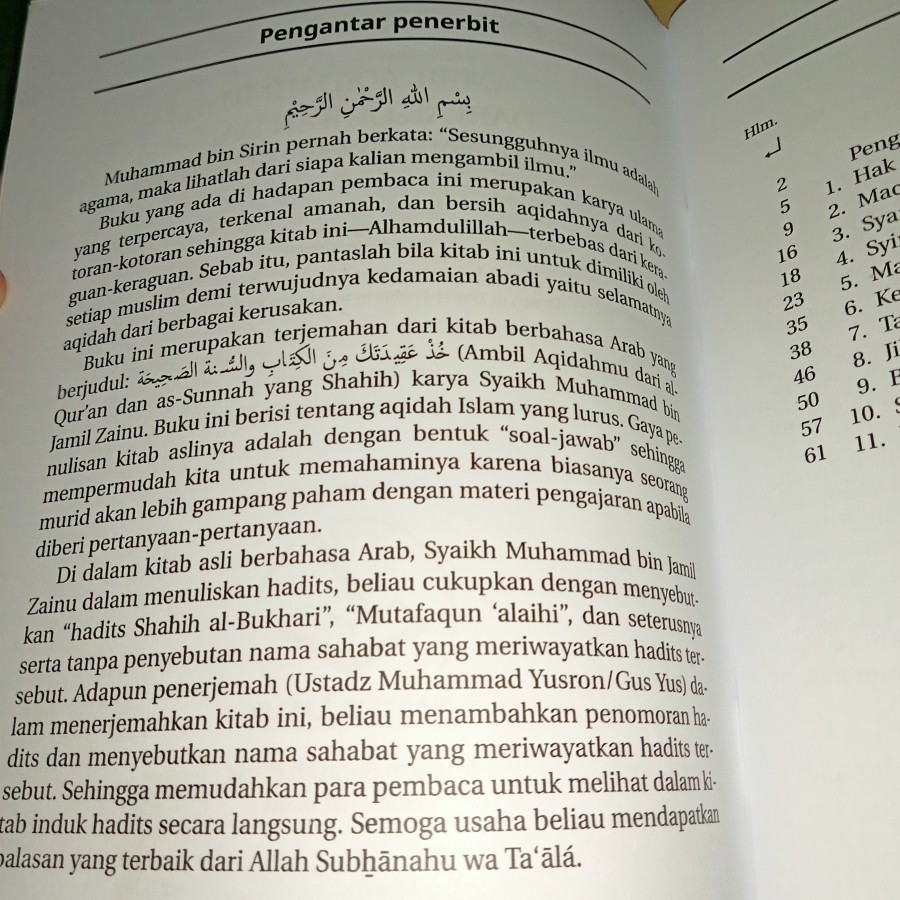 Pengantar penerbit
بِسْمِ اللهِ الرَّحْمٰنِ الرَّحِيْمِ
Muhammad bin Sirin pernah berkata: “Sesungguhnya ilmu adalah
agama, maka lihatlah dari siapa kalian mengambil ilmu.”
Buku yang ada di hadapan pembaca ini merupakan karya ulama
yang terpercaya, terkenal amanah, dan bersih aqidahnya dari ko-
toran-kotoran sehingga kitab ini—Alhamdulillah—terbebas dari kera-
guan-keraguan. Sebab itu, pantaslah bila kitab ini untuk dimiliki oleh
setiap muslim demi terwujudnya kedamaian abadi yaitu selamatnya
aqidah dari berbagai kerusakan.
Buku ini merupakan terjemahan dari kitab berbahasa Arab yang
berjudul: خُذْ عَقِيْدَتَكَ مِنَ الْكِتَابِ والسُّنة الصَحِيحَة (Ambil Aqidahmu dari al-
Qur’an dan as-Sunnah yang Shahih) karya Syaikh Muhammad bin
Jamil Zainu. Buku ini berisi tentang aqidah Islam yang lurus. Gaya pe-
nulisan kitab aslinya adalah dengan bentuk “soal-jawab” sehingga
mempermudah kita untuk memahaminya karena biasanya seorang
murid akan lebih gampang paham dengan materi pengajaran apabila
diberi pertanyaan-pertanyaan.
Di dalam kitab asli berbahasa Arab, Syaikh Muhammad bin Jamil
Zainu dalam menuliskan hadits, beliau cukupkan dengan menyebut-
kan “hadits Shahih al-Bukhari”, “Mutafaqun ‘alaihi”, dan seterusnya
serta tanpa penyebutan nama sahabat yang meriwayatkan hadits ter-
sebut. Adapun penerjemah (Ustadz Muhammad Yusron/Gus Yus) da-
lam menerjemahkan kitab ini, beliau menambahkan penomoran ha-
dits dan menyebutkan nama sahabat yang meriwayatkan hadits ter-
sebut. Sehingga memudahkan para pembaca untuk melihat dalam ki-
tab induk hadits secara langsung. Semoga usaha beliau mendapatkan
balasan yang terbaik dari Allah Subḥānahu wa Ta‘ālá.
Hlm.
2 Peng
5 1. Hak
9 2. Mac
16 3. Sya
18 4. Syi
23 5. Ma
35 6. Ke
38 7. Ta
46 8. Ji
50 9.
57 10.
61 11.